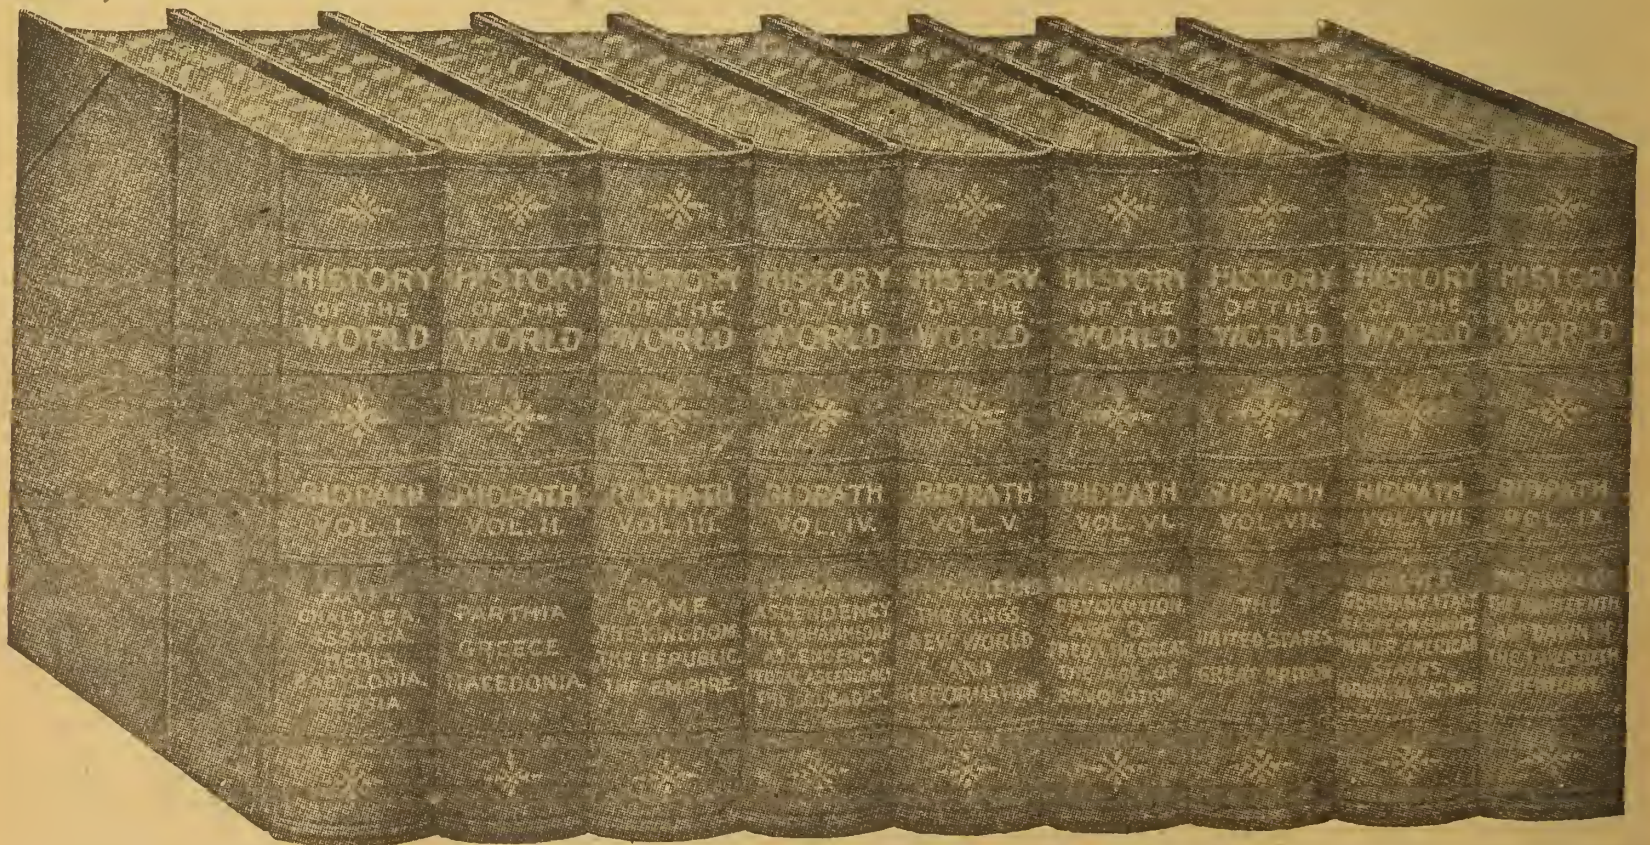 HISTORY
OF THE
WORLD
RIDPATH
VOL. I.
CHALDÆA,
ASSYRIA,
MEDIA,
BABYLONIA,
PERSIA
HISTORY
OF THE
WORLD
RIDPATH
VOL. II.
PARTHIA
GREECE
MACEDONIA.
HISTORY
OF THE
WORLD
RIDPATH
VOL. III.
ROME
THE KINGDOM
THE REPUBLIC.
THE EMPIRE.
HISTORY
OF THE
WORLD
RIDPATH
VOL. IV.
ASCENDENCY
THE MOHAMMEDAN
ASCENDENCY
ASCENDENCY
THE CRUSADES.
HISTORY
OF THE
WORLD
RIDPATH
VOL. V.
THE KINGS
NEW WORLD
AND
REFORMATION
HISTORY
OF THE
WORLD
RIDPATH
VOL. VI.
REVOLUTION
AGE OF
FREDK THE GREAT
THE AGE OF
REVOLUTION.
HISTORY
OF THE
WORLD
RIDPATH
VOL. VII.
THE
UNITED STATES
GREAT BRITAIN.
HISTORY
OF THE
WORLD
RIDPATH
VOL. VIII.
STATES.
HISTORY
OF THE
WORLD
RIDPATH
VOL. IX.
THE TWENTIETH
CENTURY